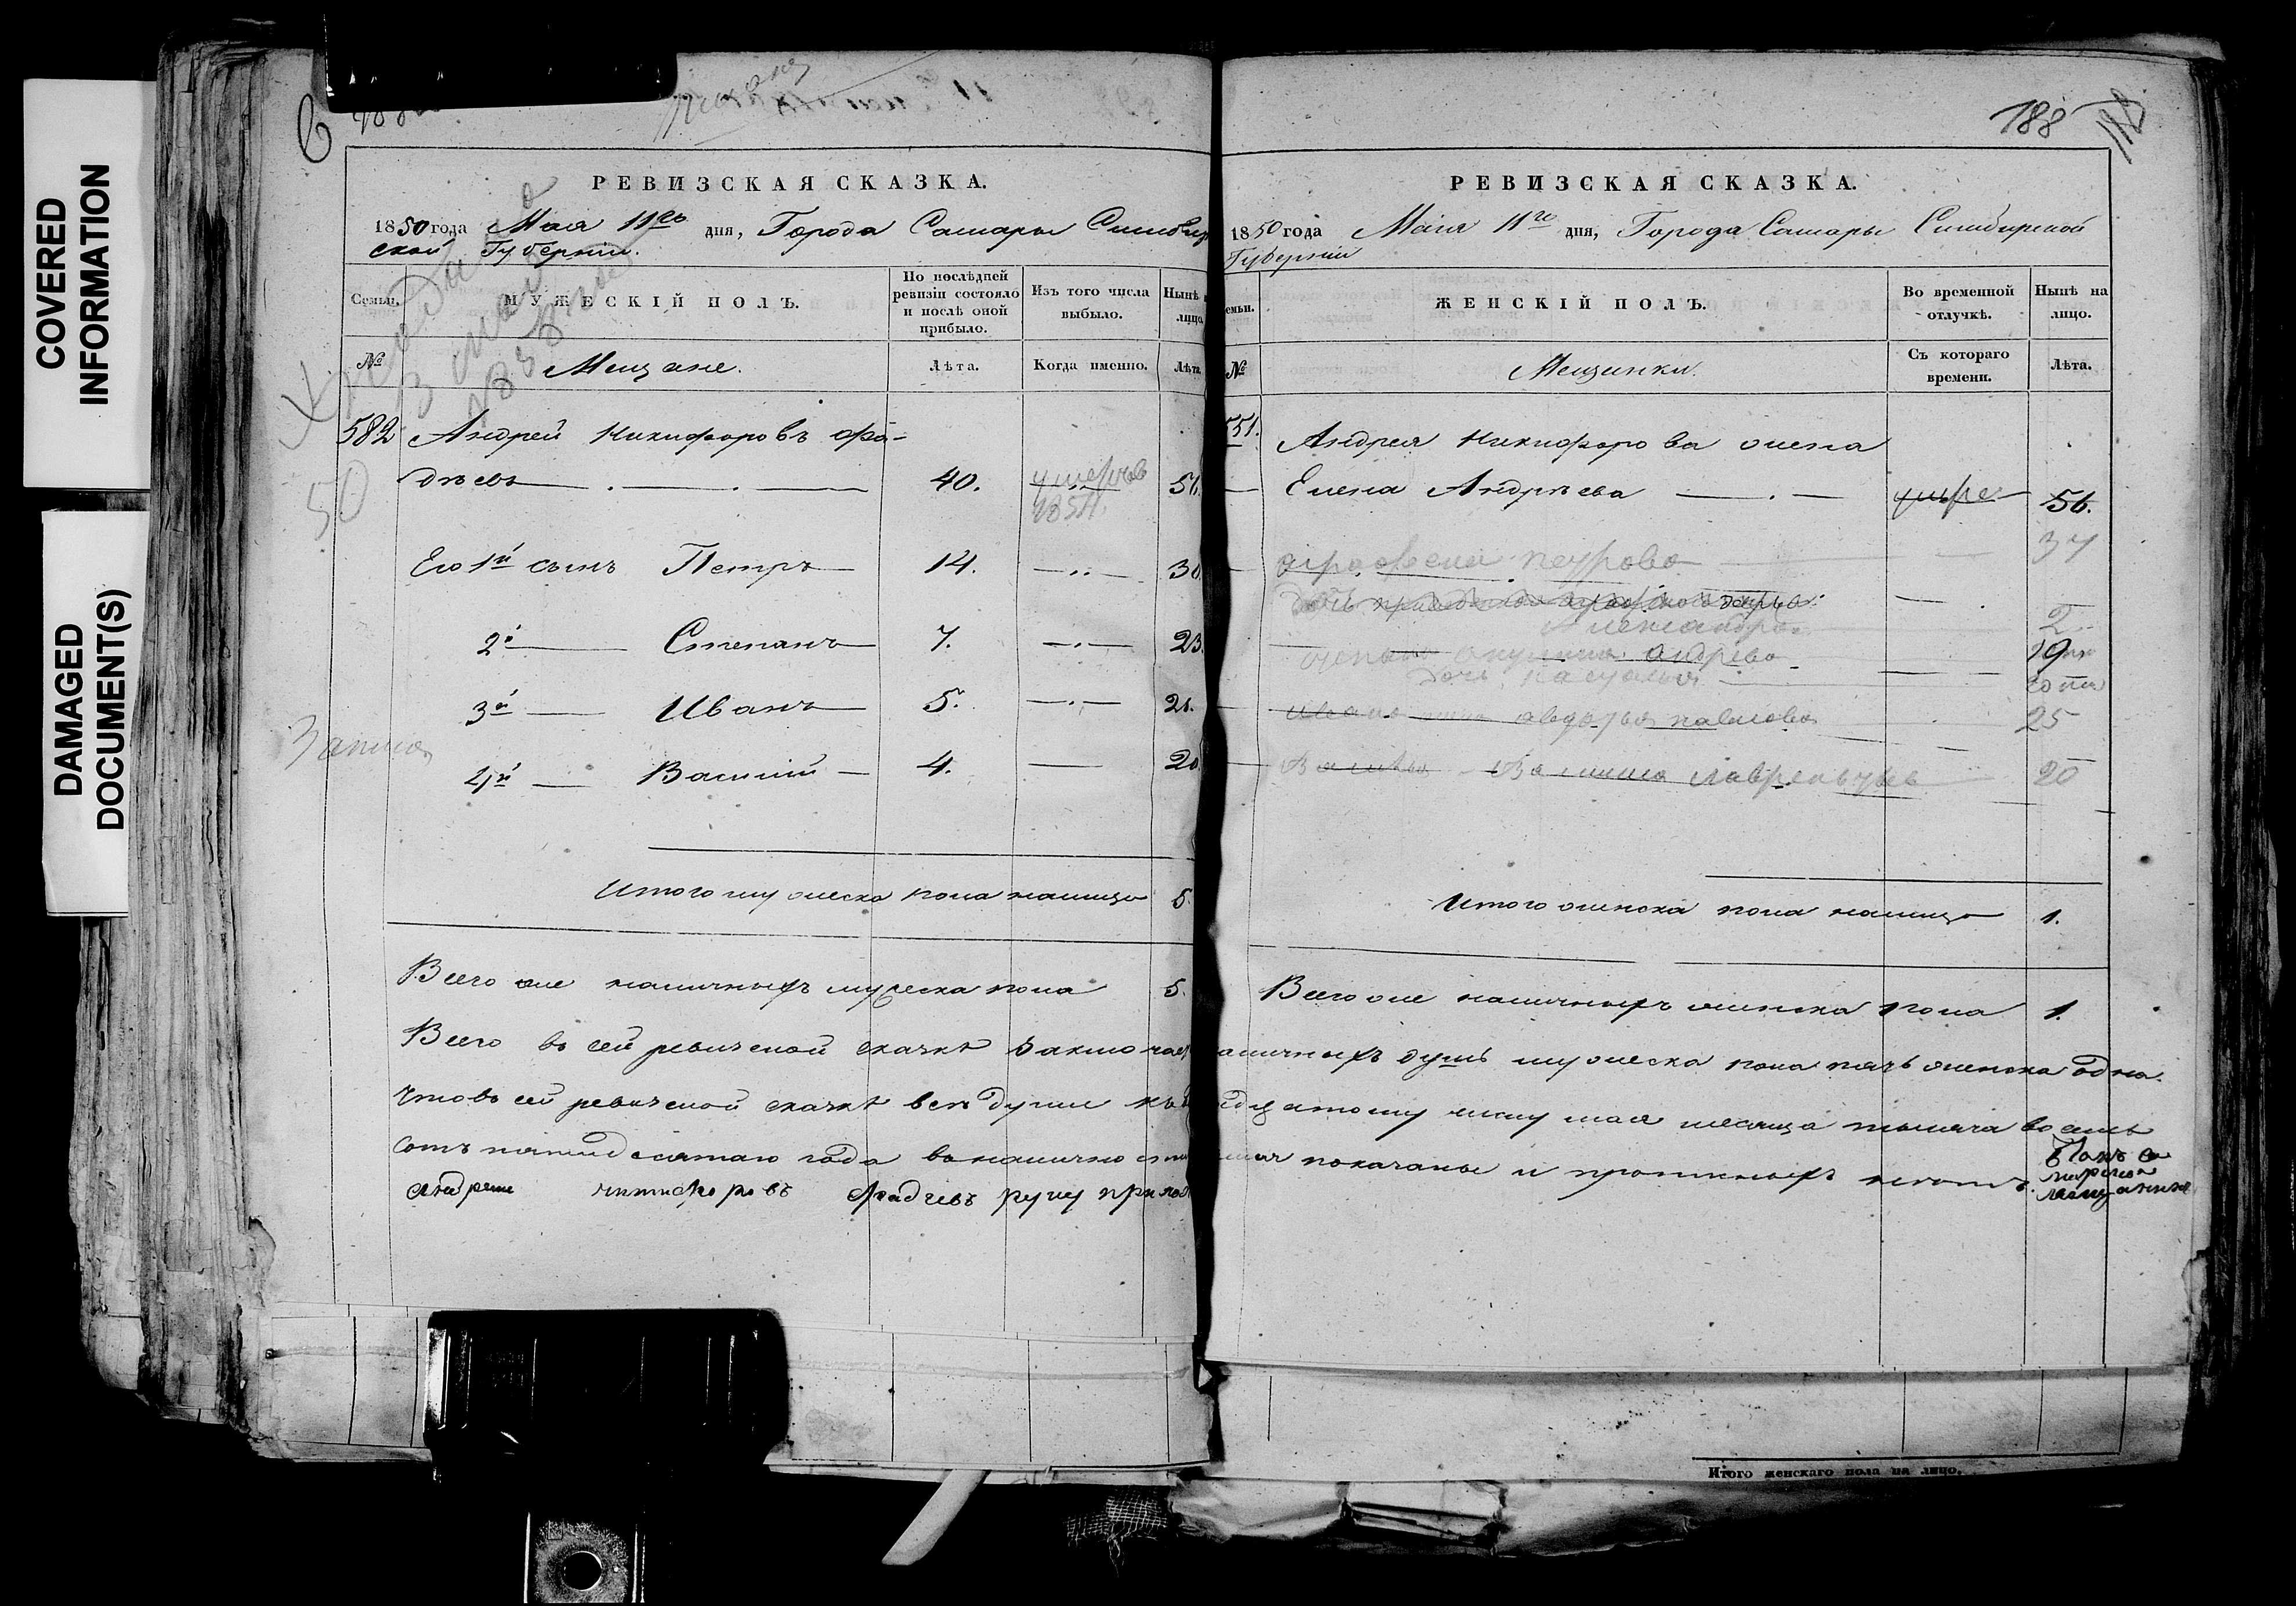 COVERED
INFORMATION
DAMAGED
DOCUMENT(S)
РЕВИЗСКАЯ СКАЗКА.
1850 года Мая 11го дня, Города Самары Симбир
ской Губернии.
Семьи.
МУЖЕСКІЙ ПОЛЪ.
По послѣдней
ревизіи состояло
и послѣ оной
прибыло.
Изъ того числа
выбыло.
Нынѣ
лицо
№
Мещане.
Лѣта.
Когда именно.
Лѣта
582 Андрей Никифоровъ Фа-
дѣевъ 40. умерѣ 1851.
50
Его 1й сынъ Петръ 14. 30.
2й Степанъ 7. 23.
3й Иванъ 5. 21.
4й Василий 4. 20
Итого мужеска пола налицо 5.
Всего же наличныхъ мужеска пола 5.
188
РЕВИЗСКАЯ СКАЗКА.
1850 года Маия 11го дня, Города Самары Симбирской
Губернии
емьи.
ЖЕНСКІЙ ПОЛЪ.
Во временной
отлучкѣ.
Нынѣ на
лицо.
№
Мещанки.
Съ котораго
времени.
Лѣта.
551. Андрея Никифорова жена
Елена Андрѣева 56.
петрова 37
Александра 2
андрева 19
дочь
авдотья павлова 25
20
Итого женска пола налицо 1.
Всего же наличныхъ женска пола 1.
Всего въ сей ревизской сказкѣ заключает аличныхъ душъ мужеска пола пять женска одна.
Что въ сей ревизской сказкѣ всѣ души къ дцатому числу мая месяца тысяча восемь
сотъ пятидесятаго года въ наличности показаны и прописныхъ нѣтъ.
Андрей никифоровъ фадеевъ руку прилож
Итого женскаго пола на лицо.